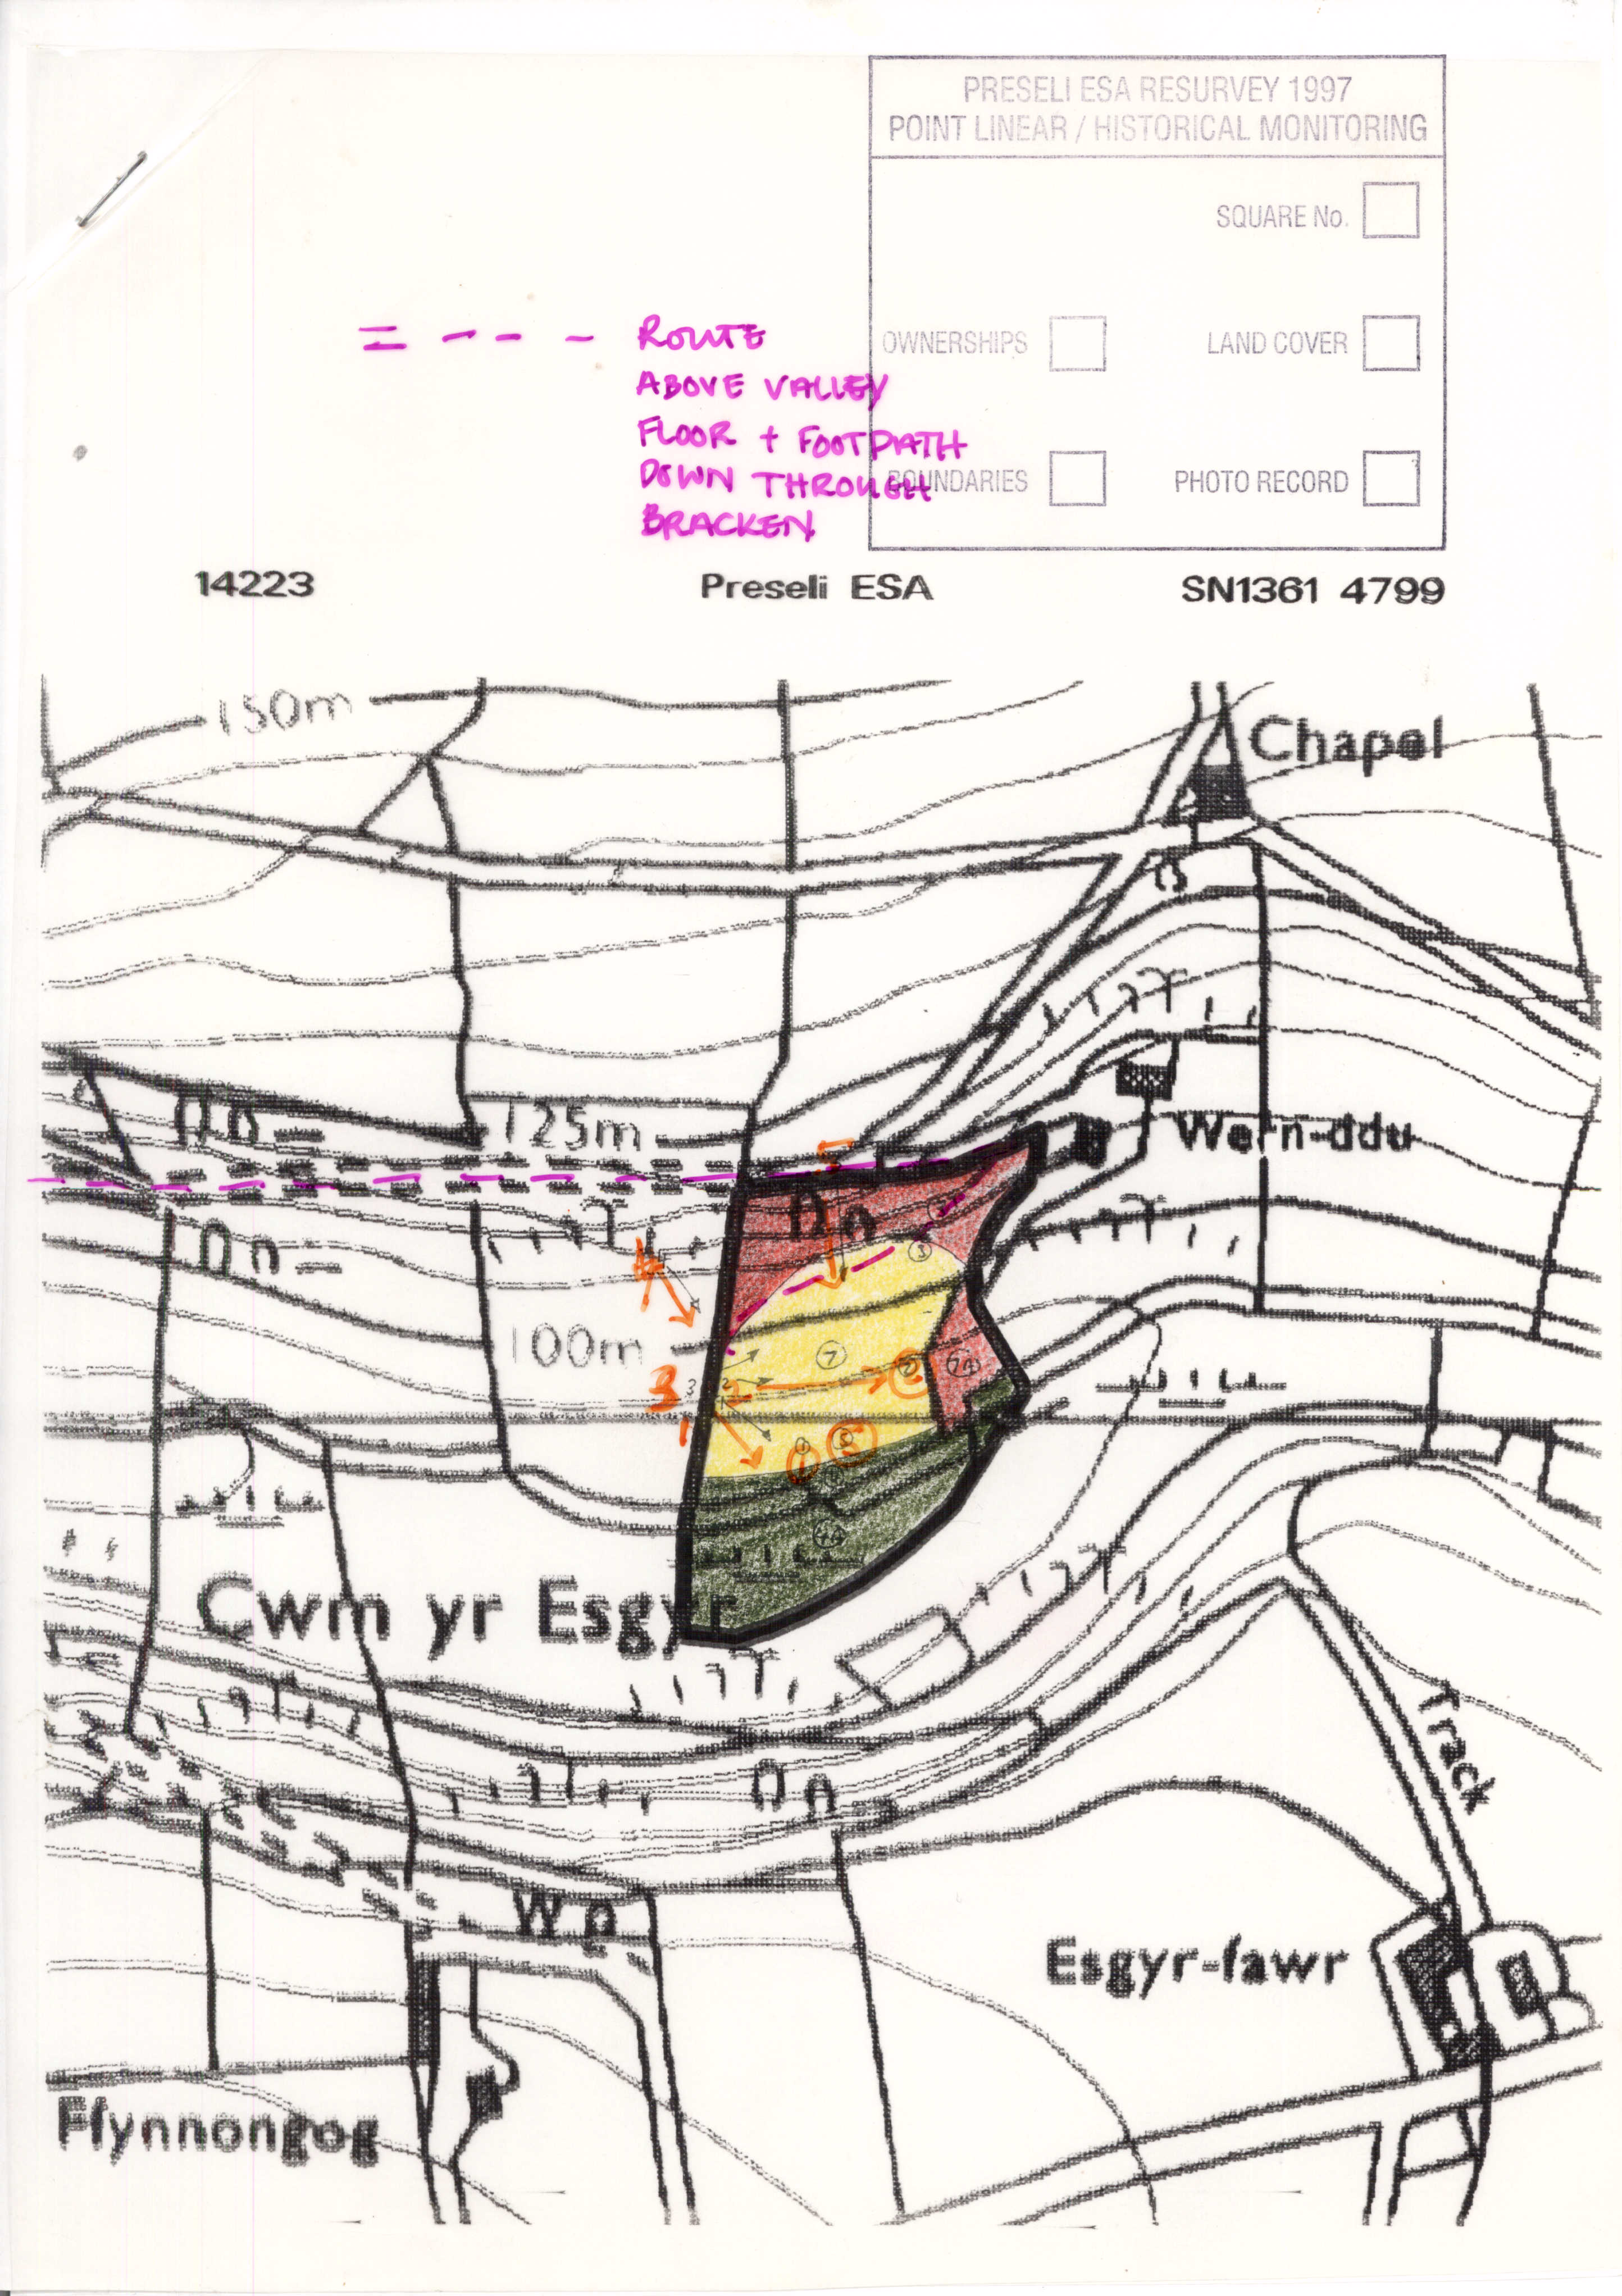 PRESELI ESA RESURVEY 1997
POINT LINEAR / HISTORICAL MONITORING
SQUARE No.
OWNERSHIPS
LAND COVER
BOUNDARIES
PHOTO RECORD
ROUTE
ABOVE VALLEY
FLOOR + FOOTPATH
DOWN THROUGH
BRACKEN
14223 Preseli ESA SN1361 4799
150m
Chapel
125m
Wern-ddu
5
4
3
100m
7
2
7A
3
3
2
1
1
4A
Cwm yr Esgyr
Track
Wp
Esgyr-fawr
Ffynnongog